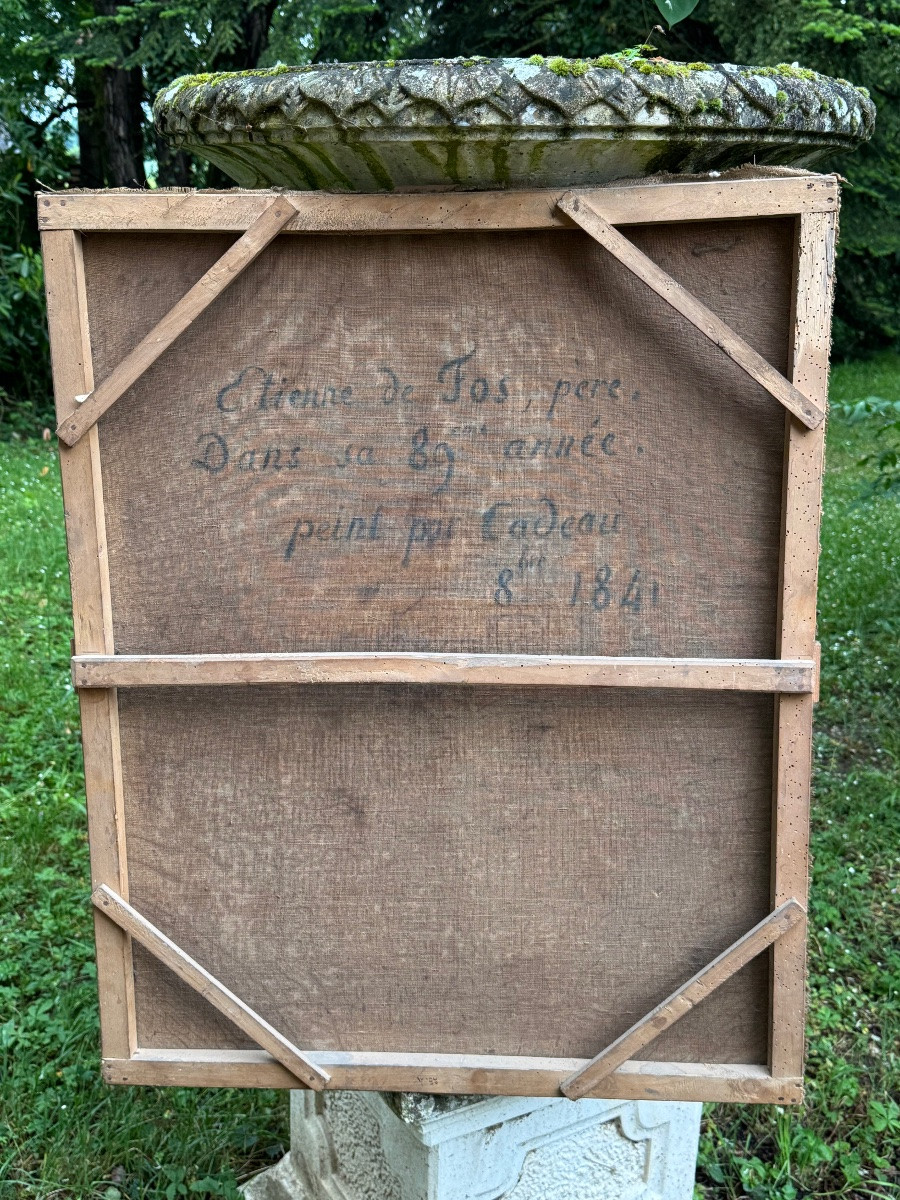 Etienne de Fos, père.
Dans sa 89eme année.
peint par Cadeau
8bre 1841